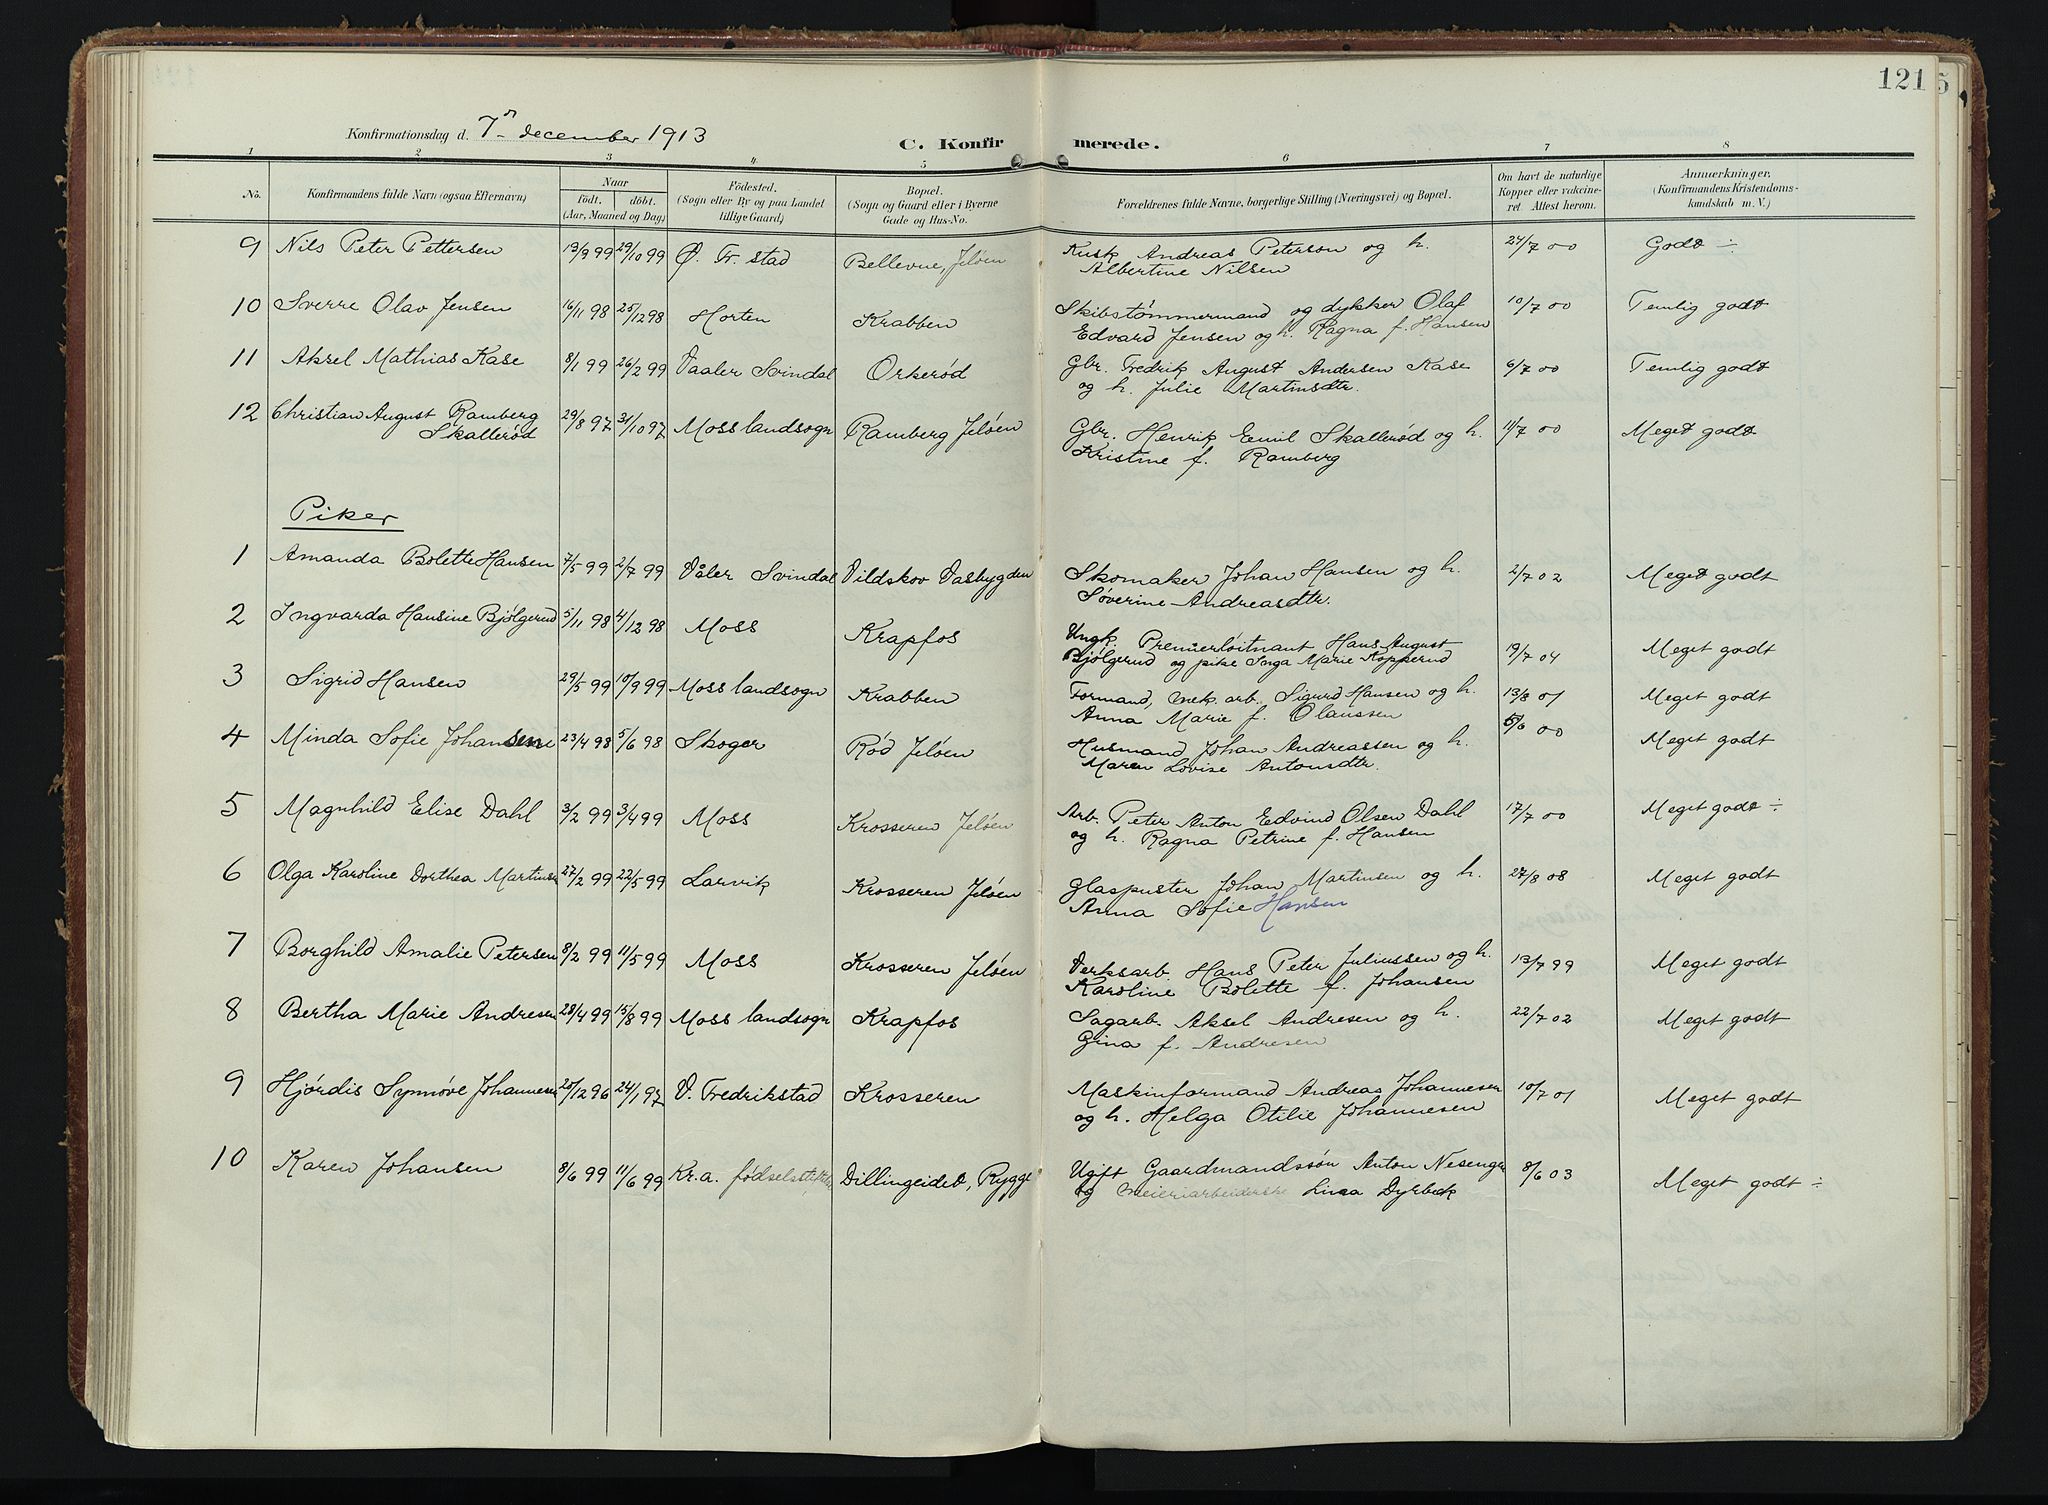 121
5
Konfirmationsdag d. 7de december 1913
C. Konfirmerede.
1 2 3 4 5 6 7 8
No. Konfirmandens fulde Navn (ogsaa Efternavn) Naar födt. döbt. (Aar, Maaned og Dag.) Födested. (Sogn eller By og paa Landet tillige Gaard.) Bopæl. (Sogn og Gaard eller i Byerne Gade og Hus-No. Forældrenes fulde Navne, borgerlige Stilling (Næringsvei) og Bopæl. Om havt de naturlige Kopper eller vakcineret. Attest herom. Anmærkninger. (Konfirmandens Kristendomskundskab m. V.)
9 Nils Peter Pettersen 13/9 99 29/10 99 Ø. Fr. stad Bellevue, Jeløen Kusk Andreas Peterson og h. 24/7 00 Godt ÷
Albertine Nilsen
10 Sverre Olav Jensen 16/11 98 25/12 98 Horten Krabben Skibstømmermand og dykker Olaf 10/7 00 Temlig godt
Edvard Jensen og h. Ragna f. Hansen
11 Aksel Mathias Kase 8/1 99 26/2 99 Vaaler Svindal Orkerød Gbr. Fredrik August Andersen Kase 6/7 00 Temlig godt
og h. Julie Martinsdtr.
12 Christian August Ramberg 29/8 97 31/10 97 Moss landsogn Ramberg Jeløen Gbr. Henrik Emil Skallerød og h. 11/7 00 Meget godt
Skallerød Kristine f. Ramberg
Piker
1 Amanda Bolette Hansen 7/5 99 2/7 99 Våler Svindal Vildskov Vasbygden Skomaker Johan Hansen og h. 2/7 02 Meget godt
Søverine Andreasdtr.
2 Ingvarda Hansine Bjølgerud 5/11 98 4/12 98 Moss Krapfos Ungk. Premierløitnant Hans August 19/7 04 Meget godt
Bjølgerud og pike Inga Marie Kopperud
3 Sigrid Hansen 29/5 99 10/9 99 Moss landsogn Krabben Formand, mek. arb. Sigurd Hansen og h. 13/8 01 Meget godt
Anna Marie f. Olaussen
4 Minda Sofie Johansen 23/4 98 5/6 98 Skoger Rød Jeløen Husmand Johan Andreassen og h. 5/6 00 Meget godt
Maren Lovise Antonsdtr.
5 Magnhild Elise Dahl 3/2 99 3/4 99 Moss Krosseren Jeløen Arb. Peter Anton Edvind Olsen Dahl 17/7 00 Meget godt ÷
og h. Ragna Petrine f. Hansen
6 Olga Karoline Dorthea Martinsen 27/2 99 22/5 99 Larvik Krosseren Jeløen Glaspuster Johan Martinsen og h. 27/8 08 Meget godt
Anna Sofie Hansen
7 Borghild Amalie Petersen 8/2 99 11/5 99 Moss Krosseren Jeløen Verksarb. Hans Peter Juliussen og h. 13/7 99 Meget godt
Karoline Bolette f. Johansen
8 Bertha Marie Andresen 28/4 99 15/8 99 Moss landsogn Krapfos Sagarb. Aksel Andresen og h. 22/7 02 Meget godt
Gina f. Andresen
9 Hjørdis Synnøve Johannesen 20/12 96 24/1 97 V. Fredrikstad Krosseren Maskinformand Andreas Johannesen 10/7 01 Meget godt
og h. Helga Otilie Johannesen
10 Karen Johansen 8/6 99 11/6 99 Kr.a. Dillingeidet, Rygge Ugift Gaardmandssøn Anton 8/6 03 Meget godt ÷
og meieriarbeiderske Dyrbek